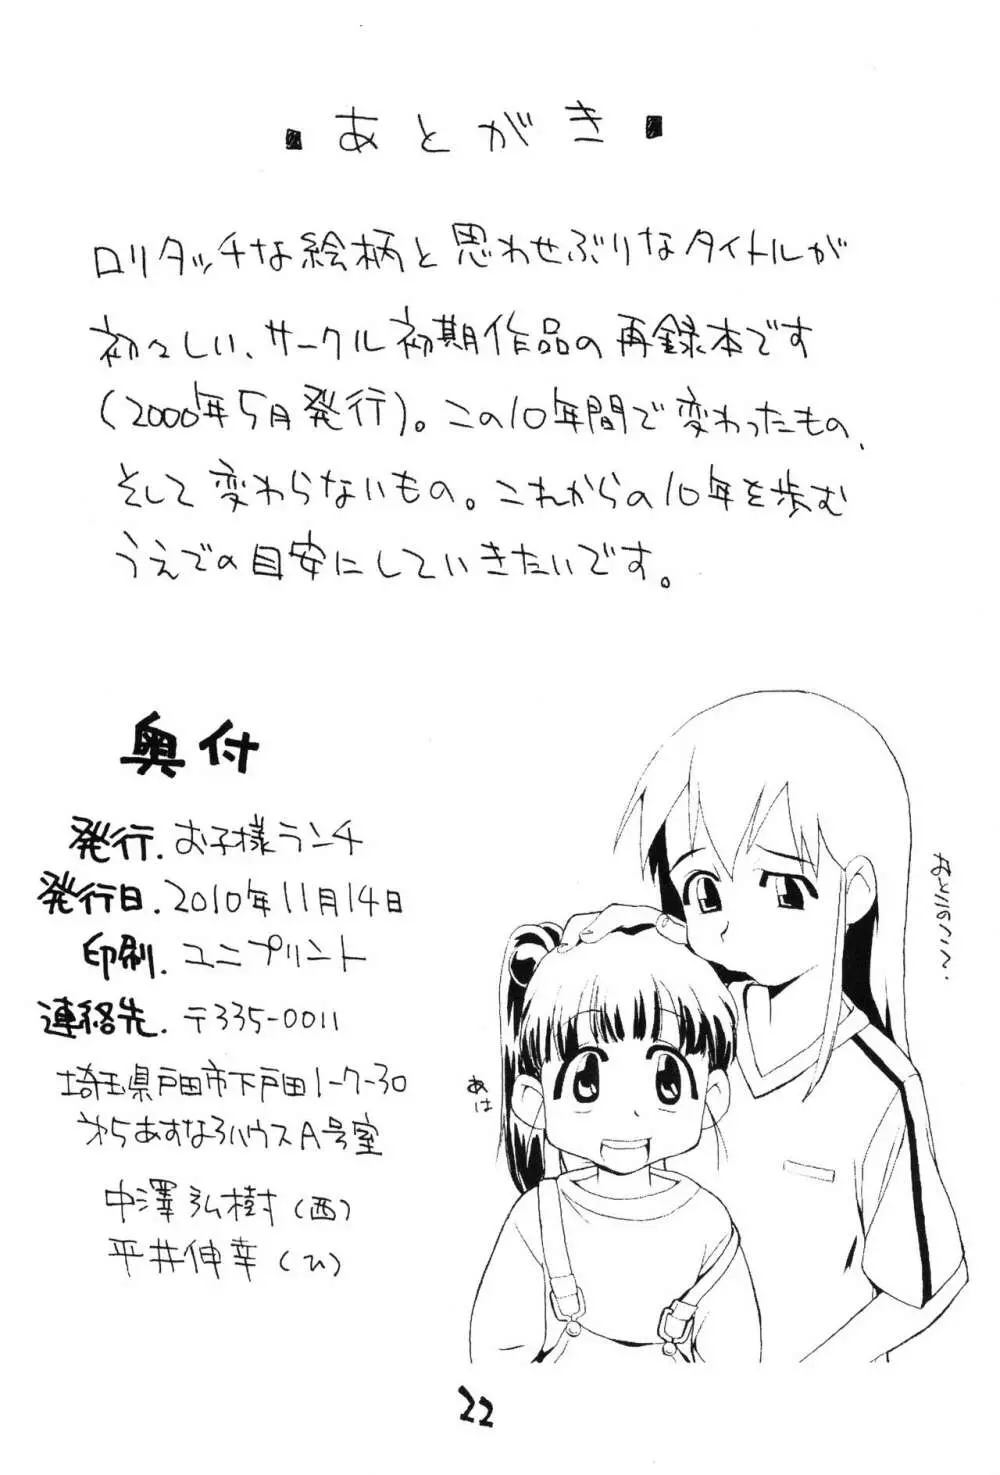 あとがき
ロリタッチな絵柄と思わせぶりなタイトルが
初々しい、サークル初期作品の再録本です
(2000年5月発行)。この10年間で変わったもの、
そして変わらないもの。これからの10年を歩む
うえでの目安にしていきたいです。
奥付
発行.お子様ランチ
発行日.2010年11月14日
印刷.ユニプリント
連絡先.〒335-0011
埼玉県戸田市下戸田1-7-30
第5あすなろハウスA号室
中澤弘樹(西)
平井伸幸(ひ)
おとこのこ?
あは
22